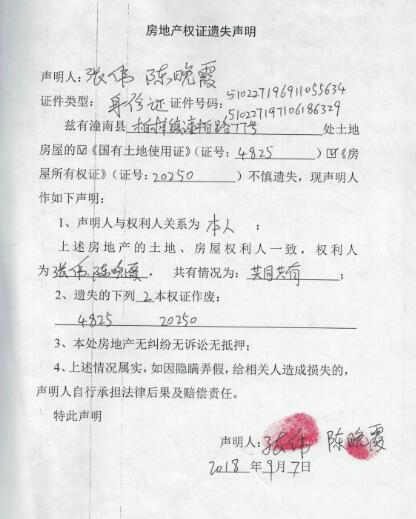 房地产权证遗失声明
声明人：张伟 陈晚霞
证件类型：身份证 证件号码：510227196911055634
510227197106186329
兹有潼南县柏梓镇潼柏路77号处土地
房屋的☑《国有土地使用证》（证号：4825）☑《房
屋所有权证》（证号：20250）不慎遗失，现声明人
作如下声明：
1、声明人与权利人关系为 本人 ；
上述房地产的土地、房屋权利人一致，权利人
为张伟 陈晚霞，共有情况为：共同共有；
2、遗失的下列 2 本权证作废：
4825 20250
3、本处房地产无纠纷无诉讼无抵押；
4、上述情况属实，如因隐瞒弄假，给相关人造成损失的，
声明人自行承担法律后果及赔偿责任。
特此声明
声明人：张伟 陈晚霞
2018年9月7日